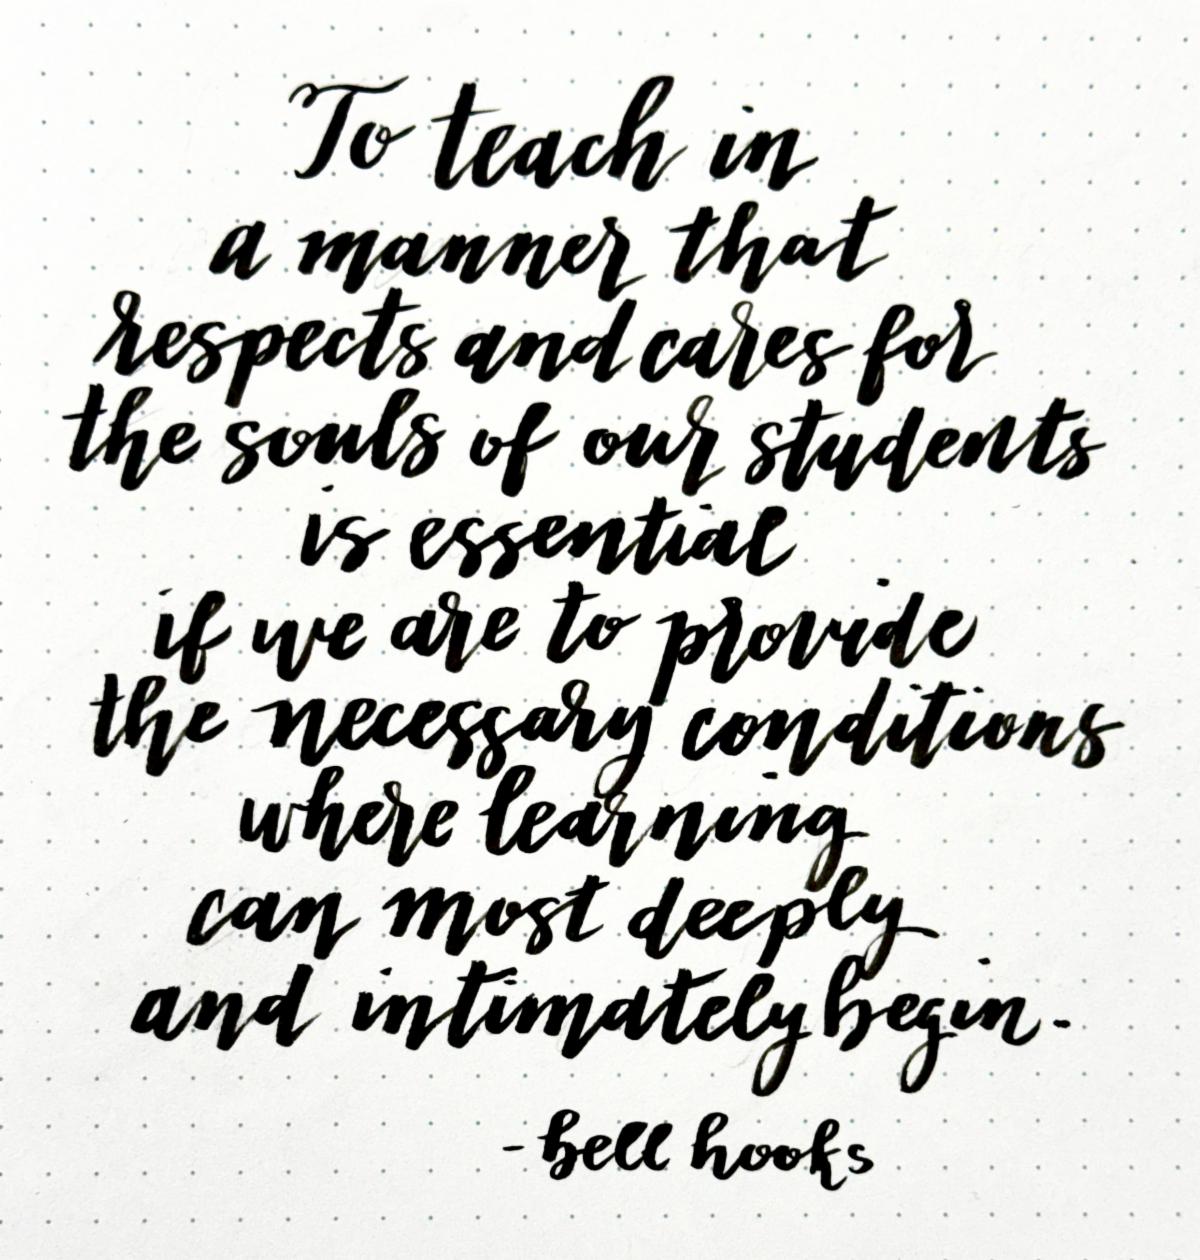 To teach in
a manner that
respects and cares for
the souls of our students
is essential
if we are to provide
the necessary conditions
where learning
can most deeply
and intimately begin.
- bell hooks